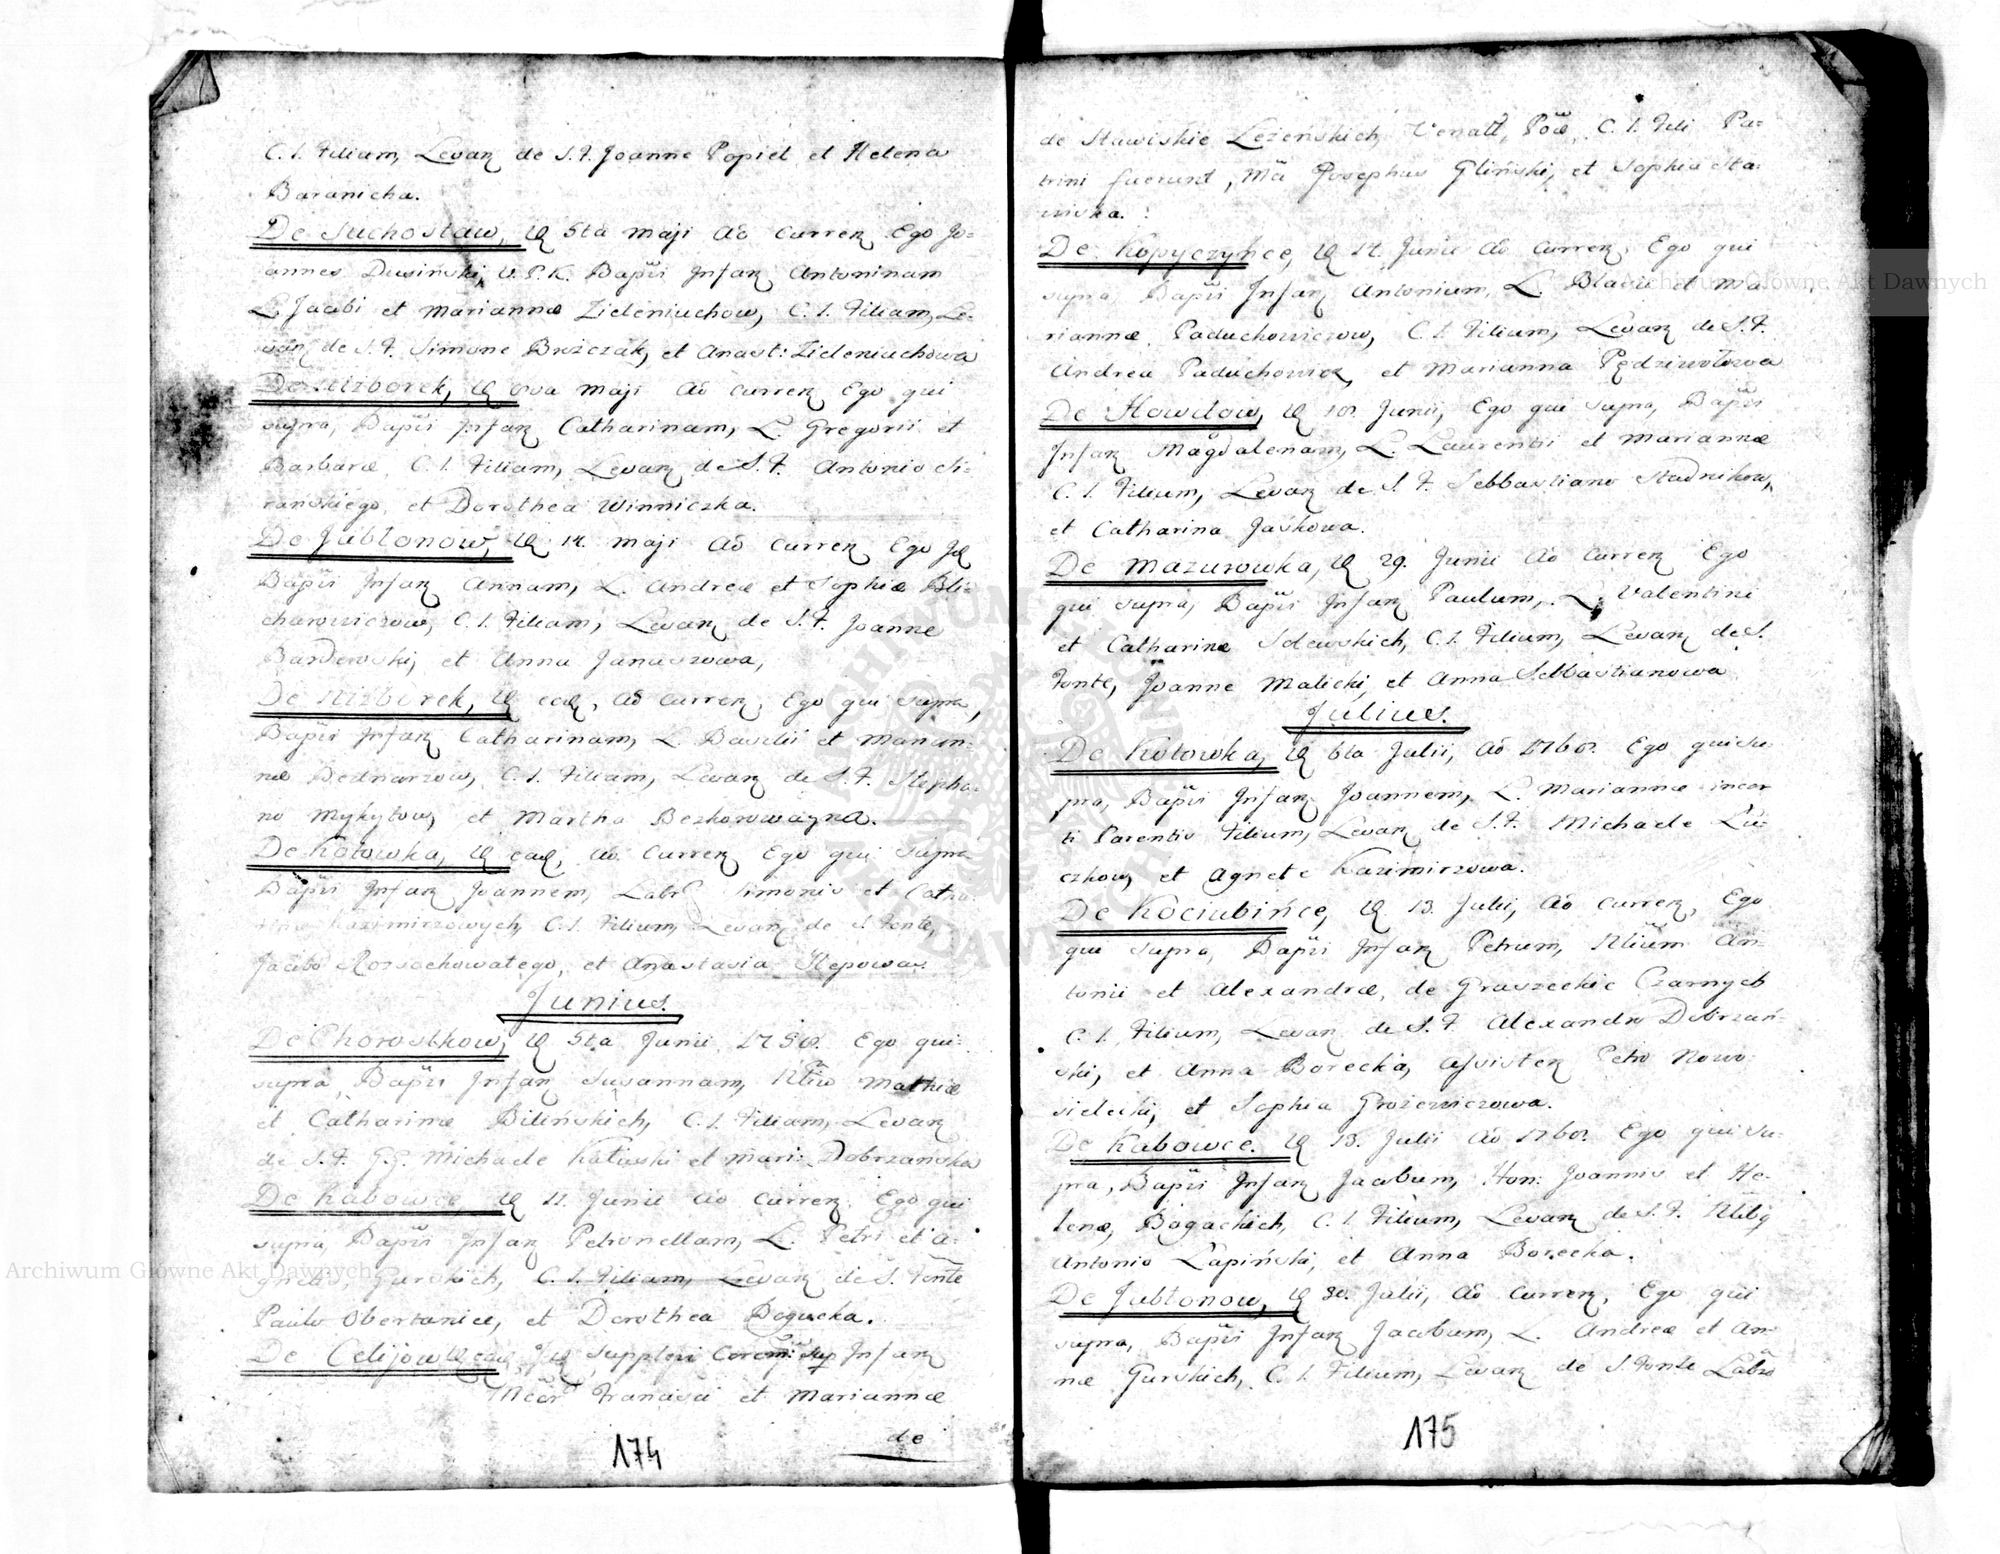 C. L. Filiam, Levan de S. F. Joanne Popiel et Helena
Baranicha.
De Suchostaw, 5ta Maji Ao Curren Ego Jo=
annes Dusiński, V. P. K. Bapti Infan Antoninam
L. Jacobi et Mariannæ Zieleniuchow, C. L. Filiam, Le=
van de S. F. Simone Brszczak, et Anast: Zieleniuchowa
De Nizborek, Maji Ao Curren Ego qui
supra, Bapti Infan Catharinam, L. Gregorii et
Barbaræ, C. L. Filiam, Levan de S. F. Antonio
et Dorothea Winniczka.
De Jabłonow, 14. Maji Ao Curren Ego
Bapti Infan Annam, L. Andreæ et Sophiæ Bli=
charowiczow, C. L. Filiam, Levan de S. F. Joanne
Barderoski, et Anna Janaszowa,
De Nizborek, ead, Ao Curren, Ego qui supra,
Bapti Infan Catharinam, L. Basilii et Marian=
næ Bednarzow, C. L. Filiam, Levan de S. F. Stepha=
no Mykytow, et Martha Bezkorowayna.
De Kotowka, ead, Ao Curren Ego qui supra
Bapti Infan Joannem, Labr Simonis et Catha
rinæ Kazimirzowych, C. L. Filium, Levan de S. Fonte,
Jacobo Rossochowatego, et Anastasia Stepowa.
Junius.
De Chorostkow, 5ta Junii Ego qui
supra, Bapti Infan Susannam, Mathiæ
et Catharinæ Bilińskich, C. L. Filiam, Levan
de S. F. G. G. Michaele Katuski et Mari: Dobrzańska
De Kabowce Junii Ao Curren. Ego qui
supra, Bapti Infan Petronellam, L. Petri et A=
gnetis, Gurskich, C. L. Filiam, Levan de S. Fonte
Paulo Obertaniec, et Dorothea Bogucka.
De Celijow ead, Supplevi Cerem: sup Infan
Francisci et Mariannæ
de
174
de Stawiskie Lezeńskich, Venatt, Pod, C. L. Fili Pa=
trini fuerunt, Josephus Gliński, et Sophia Sta=
nivka.
De Kopyczyńce, 12. Junii Ao Curren, Ego qui
supra, Bapti Infan Antonium, L. Blasii et Ma=
riannæ, Paduchowiczow, C. L. Filium, Levan de S. F.
Andrea Paduchowicz, et Marianna Pędziwotowa
De Howdow, Junii, Ego qui supra, Bapti
Infan Magdalenam, L. Laurentii et Mariannæ
C. L. Filium, Levan de S. F. Sebbastiano Stadnikow,
et Catharina Jaskowa.
De Mazurowka, 29. Junii Ao Curren Ego
qui supra, Bapti Infan Paulum, L. Valentini
et Catharinæ Solewskich, C. L. Filium, Levan de S.
Fonte, Joanne Malicki, et Anna Sebbastianowa
Julius.
De Kotowka, 6ta Julii, Ao Ego qui su=
pra, Bapti Infan Joannem, L. Mariannæ incer
ti Parentis Filium, Levan de S. F. Michaele Lu=
czkow, et Agnete Kazimirzowa.
De Kociubińce, 13. Julii, Ao Curren, Ego
qui supra, Bapti Infan Petrum, An=
tonii et Alexandræ, de Graszeckie Czarnych
C. L. Filium, Levan de S. F. Alexandro Dobrzań=
ski, et Anna Borecka, assisten Petro Nowo=
sielecki, et Sophia Grozewiczowa.
De Kabowce. 13. Julii Ao Ego qui su=
pra, Bapti Infan Jacobum, Hon: Joannis et He=
lenæ, Bogackich, C. L. Filium, Levan de S. F.
Antonio Łapiński, et Anna Borecka.
De Jabłonow, 30. Julii, Ao Curren, Ego qui
supra, Bapti Infan Jacobum, L. Andreæ et An=
næ Gurskich, C. L. Filium, Levan de S. Fonte Labro
175
Archiwum Główne Akt Dawnych
Archiwum Główne Akt Dawnych